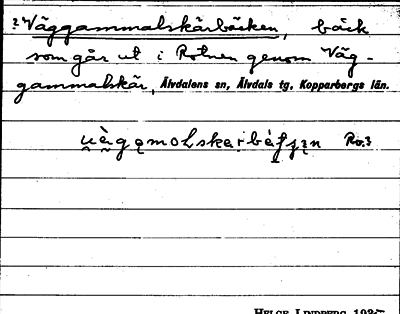 ?Väggammalskärbäcken, bäck
som går ut i Rotnen genom Väg-
gammalskär, Älvdalens sn, Älvdals tg, Kopparbergs län.
Ro.3
HELGE LINDBERG 1935